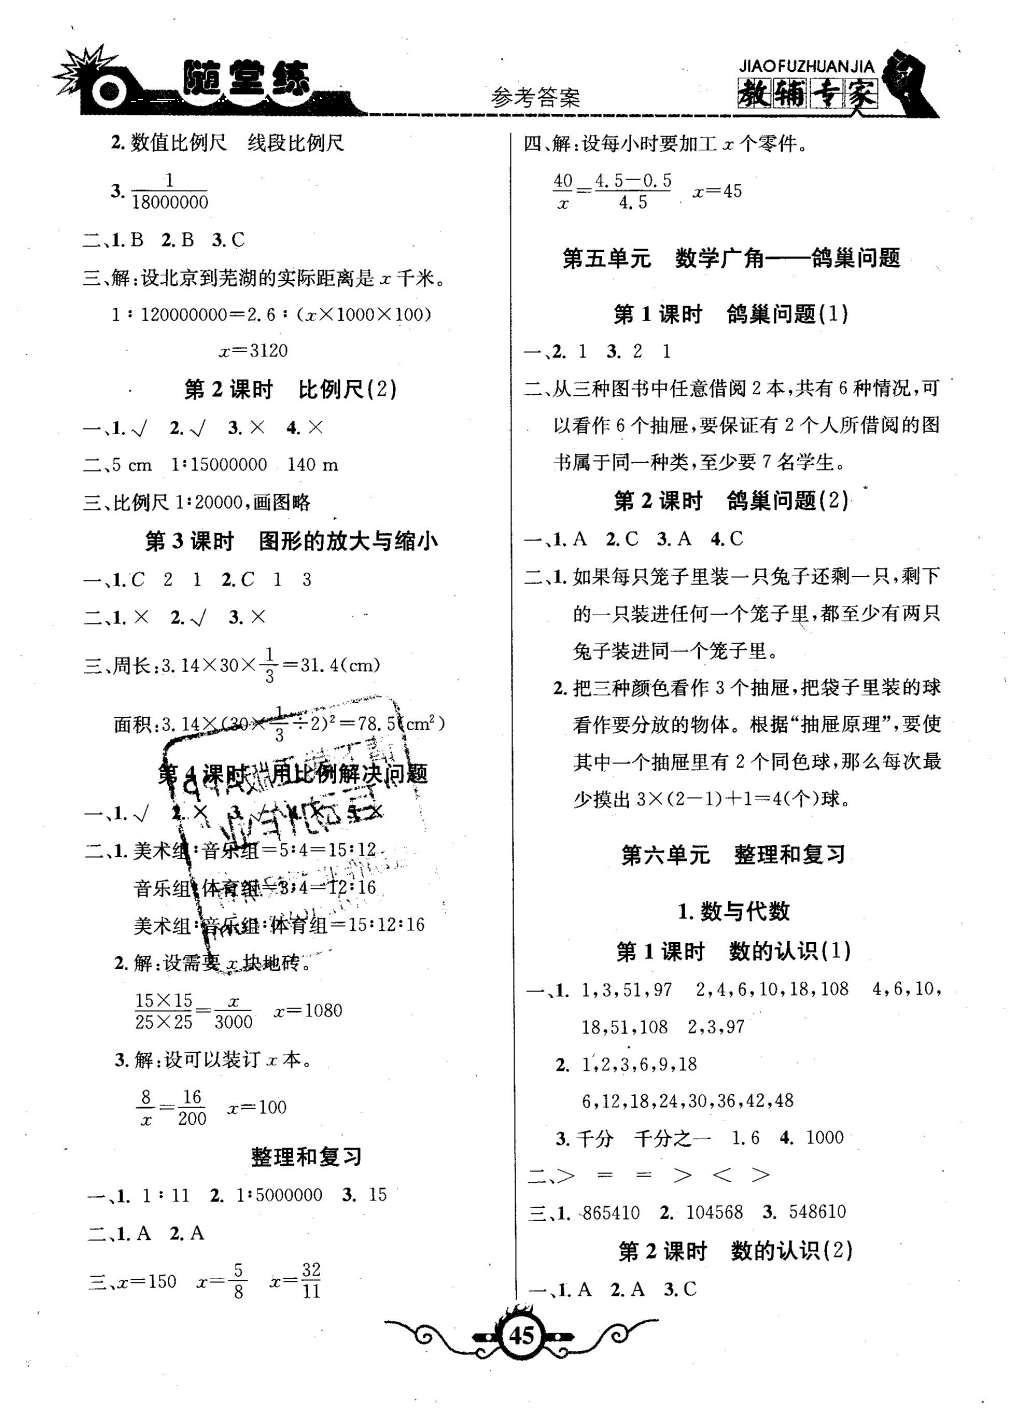 随堂练
参考答案
JIAOFUZHUANJIA
教辅专家
2.数值比例尺　线段比例尺
3. 1/18000000
二、1.B　2.B　3.C
三、解:设北京到芜湖的实际距离是x千米。
1∶120000000=2.6∶(x×1000×100)
x=3120
第2课时　比例尺(2)
一、1.√　2.√　3.×　4.×
二、5 cm　1∶15000000　140 m
三、比例尺1∶20000,画图略
第3课时　图形的放大与缩小
一、1.C　2　1　2.C　1　3
二、1.×　2.√　3.×
三、周长:3.14×30×1/3=31.4(cm)
面积:3.14×(30×1/3÷2)²=78.5(cm²)
第4课时　用比例解决问题
一、1.√　2.×　3.√　4.×　5.×
二、1.美术组∶音乐组=5∶4=15∶12
音乐组∶体育组=3∶4=12∶16
美术组∶音乐组∶体育组=15∶12∶16
2.解:设需要x块地砖。
15×15/25×25=x/3000　x=1080
3.解:设可以装订x本。
8/x=16/200　x=100
整理和复习
一、1. 1∶11　2. 1∶5000000　3. 15
二、1.A　2.A
三、x=150　x=5/8　x=32/11
四、解:设每小时要加工x个零件。
40/x=4.5-0.5/4.5　x=45
第五单元　数学广角——鸽巢问题
第1课时　鸽巢问题(1)
一、2. 1　3. 2　1
二、从三种图书中任意借阅2本,共有6种情况,可
以看作6个抽屉,要保证有2个人所借阅的图
书属于同一种类,至少要7名学生。
第2课时　鸽巢问题(2)
一、1.A　2.C　3.A　4.C
二、1.如果每只笼子里装一只兔子还剩一只,剩下
的一只装进任何一个笼子里,都至少有两只
兔子装进同一个笼子里。
2.把三种颜色看作3个抽屉,把袋子里装的球
看作要分放的物体。根据“抽屉原理”,要使
其中一个抽屉里有2个同色球,那么每次最
少摸出3×(2-1)+1=4(个)球。
第六单元　整理和复习
1.数与代数
第1课时　数的认识(1)
一、1. 1,3,51,97　2,4,6,10,18,108　4,6,10,
18,51,108　2,3,97
2. 1,2,3,6,9,18
6,12,18,24,30,36,42,48
3.千分　千分之一　1.6　4. 1000
二、>　=　=　>　<　>
三、1. 865410　2. 104568　3. 548610
第2课时　数的认识(2)
一、1.A　2.A　3.C
45